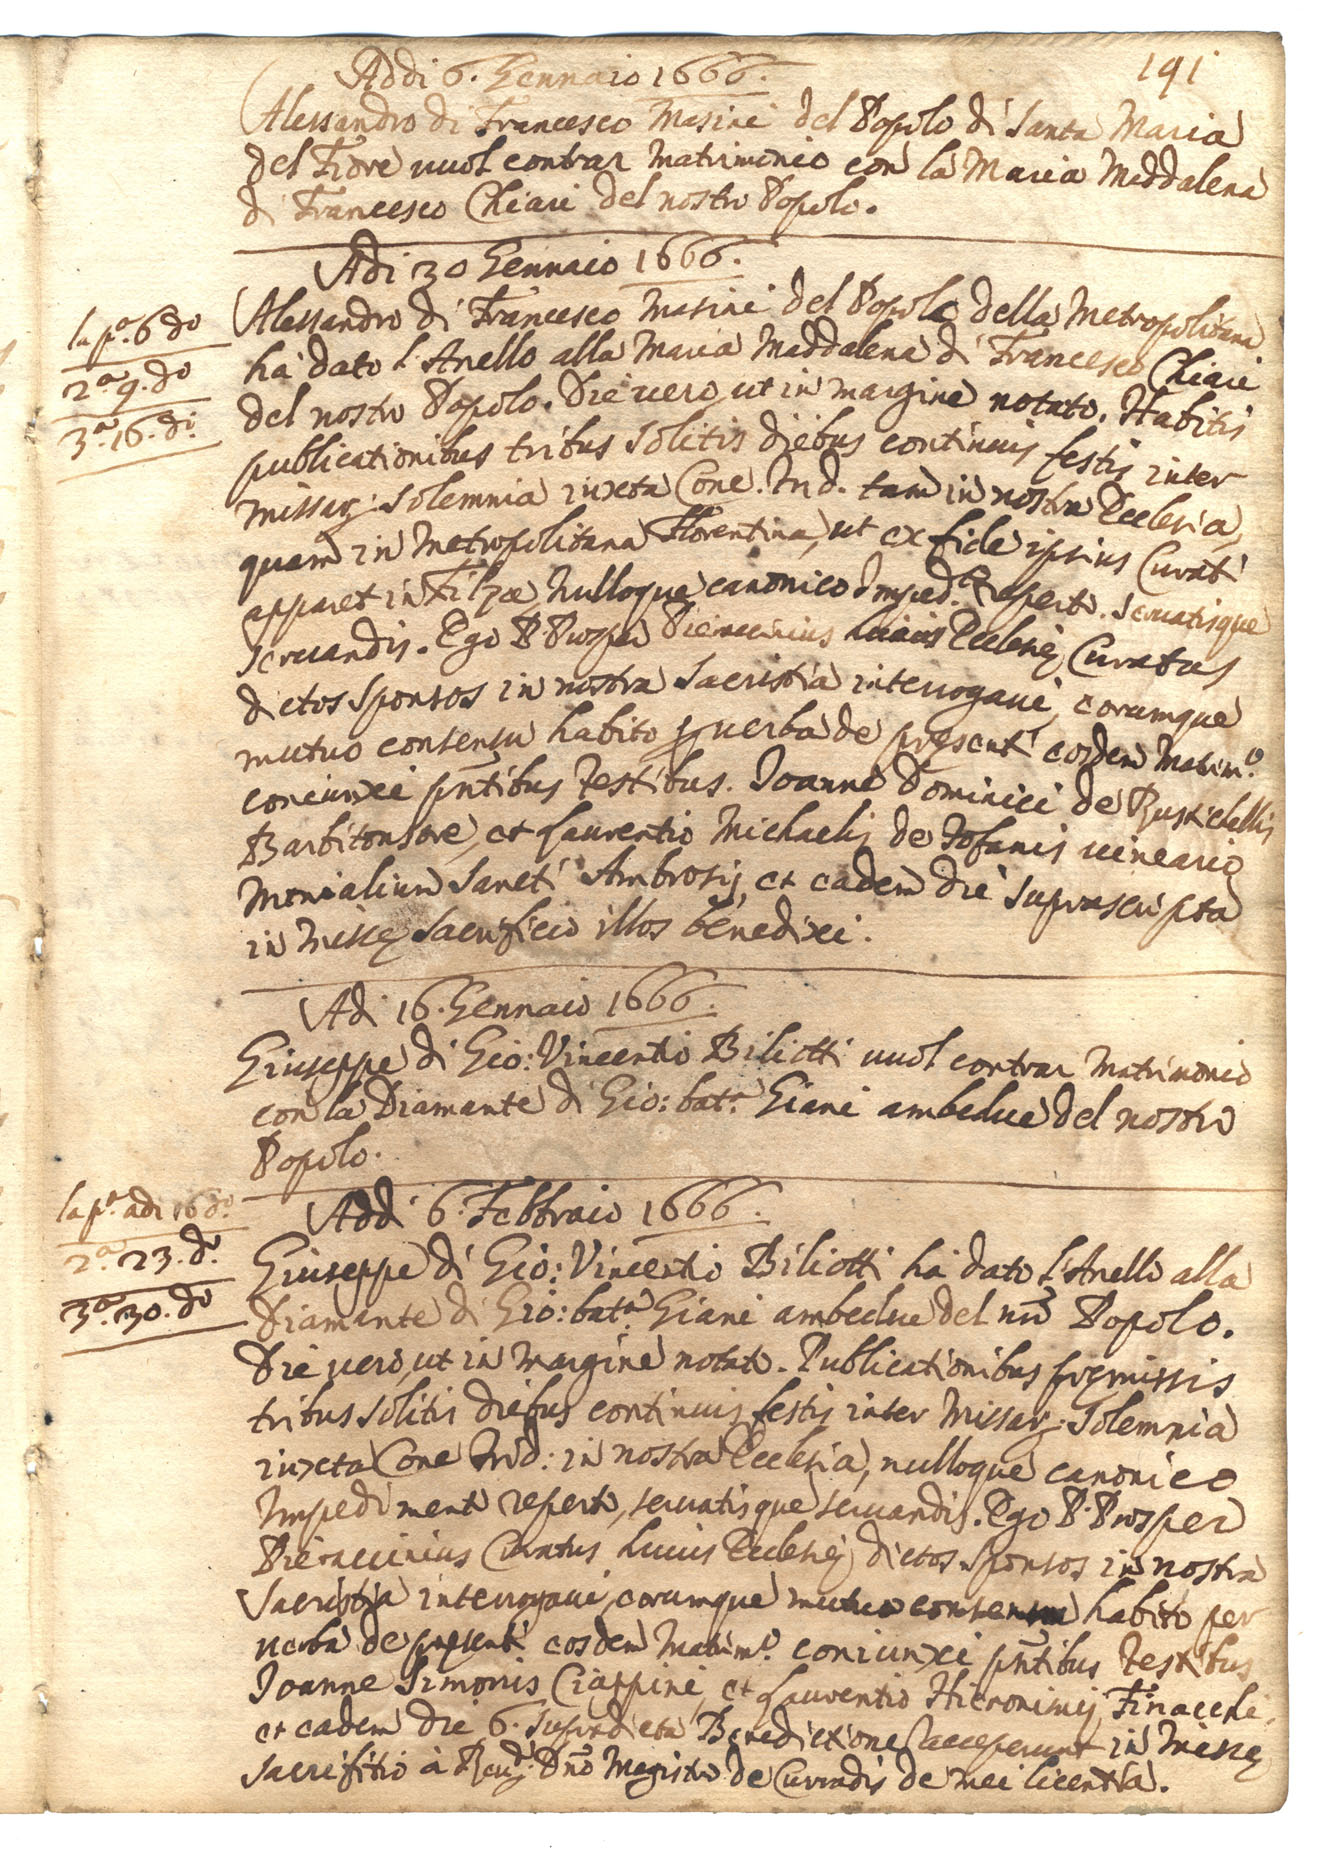 191
Addi 6. Gennaio 1666.
Alessandro di Francesco Masini del Popolo di Santa Maria
del Fiore vuol contrar Matrimonio con la Maria Maddalena
di Francesco Chiari del nostro Popolo.
Adi 30 Gennaio 1666.
la p.a 6 do
2.a 9. do
3.a 16. di
Alessandro di Francesco Masini del Popolo della Metropolitana
hà dato l'Anello alla Maria Maddalena di Francesco Chiari
del nostro Popolo. Die vero, ut in margine notato. Habitis
publicationibus tribus solitis diebus continuis festis inter
missar: solemnia iuxta Conc. Trid. tam in nostra Ecclesia,
quam in Metropolitana Florentina, ut ex fide ipsius Curati
apparet in Filza, Nulloque canonico Imped.to reperto. Servatisque
servandis. Ego P. Prosper Pieraccinius huius Ecclesię Curatus
dictos sponsos in nostra Sacristia interrogavi, eorumque
mutuo consensu habito p verba de pręsenti eosdem Matrim.o
coniunxi pñtibus Testibus. Joanne Dominici de Rustichellis
Barbitonsore, et Laurentio Michaelis de Tofanis vineario
Monialium Sancti Ambrosij, et eadem die suprascripta
in Missę sacrificio illos benedixi.
Adi 16. Gennaio 1666.
Giuseppe di Gio: Vincentio Biliotti vuol contrar Matrimonio
con la Diamante di Gio: bat.a Giani ambedue del nostro
Popolo.
la p.a adi 16 do.
2.a 23. do.
3.a 30. do
Addi 6. Febbraio 1666.
Giuseppe di Gio: Vincentio Biliotti ha dato l'Anello alla
Diamante di Gio: bat.a Giani ambedue del nrõ Popolo.
Die vero, ut in Margine notato. Publicationibus pręmissis
tribus solitis diebus continuis festis inter Missar: solemnia
iuxta Conc Trid: in nostra Ecclesia, nulloque canonico
Impedimento reperto, servatisque servandis. Ego P. Prosper
Pieraccinius Curatus huius Ecclesię dictos sponsos in nostra
Sacristia interrogavi, eorumque mutuo consensu habito per
verba de pręsenti eosdem Matrim.o coniunxi pñtibus Testibus
Joanne Simonis Ciappini, et Laurentio Hieronimi Finacchi,
et eadem die 6. supradicta Benedictione acceperunt in Missę
sacrifitio à Dño Magistro de Curradis de mei licentia.